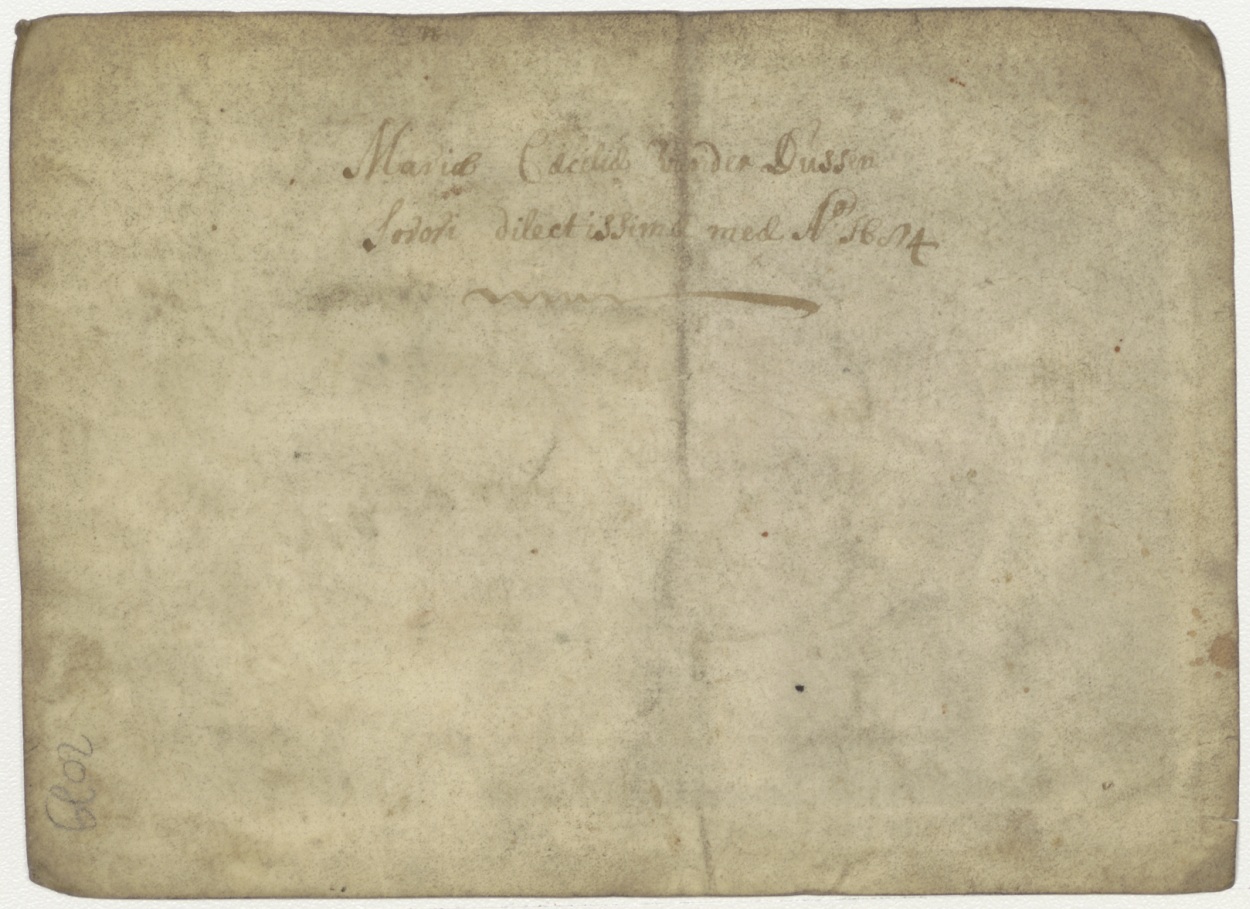 Mariæ Cæciliæ Vander Dussen
Sorori dilectissimæ meæ Aº 1674